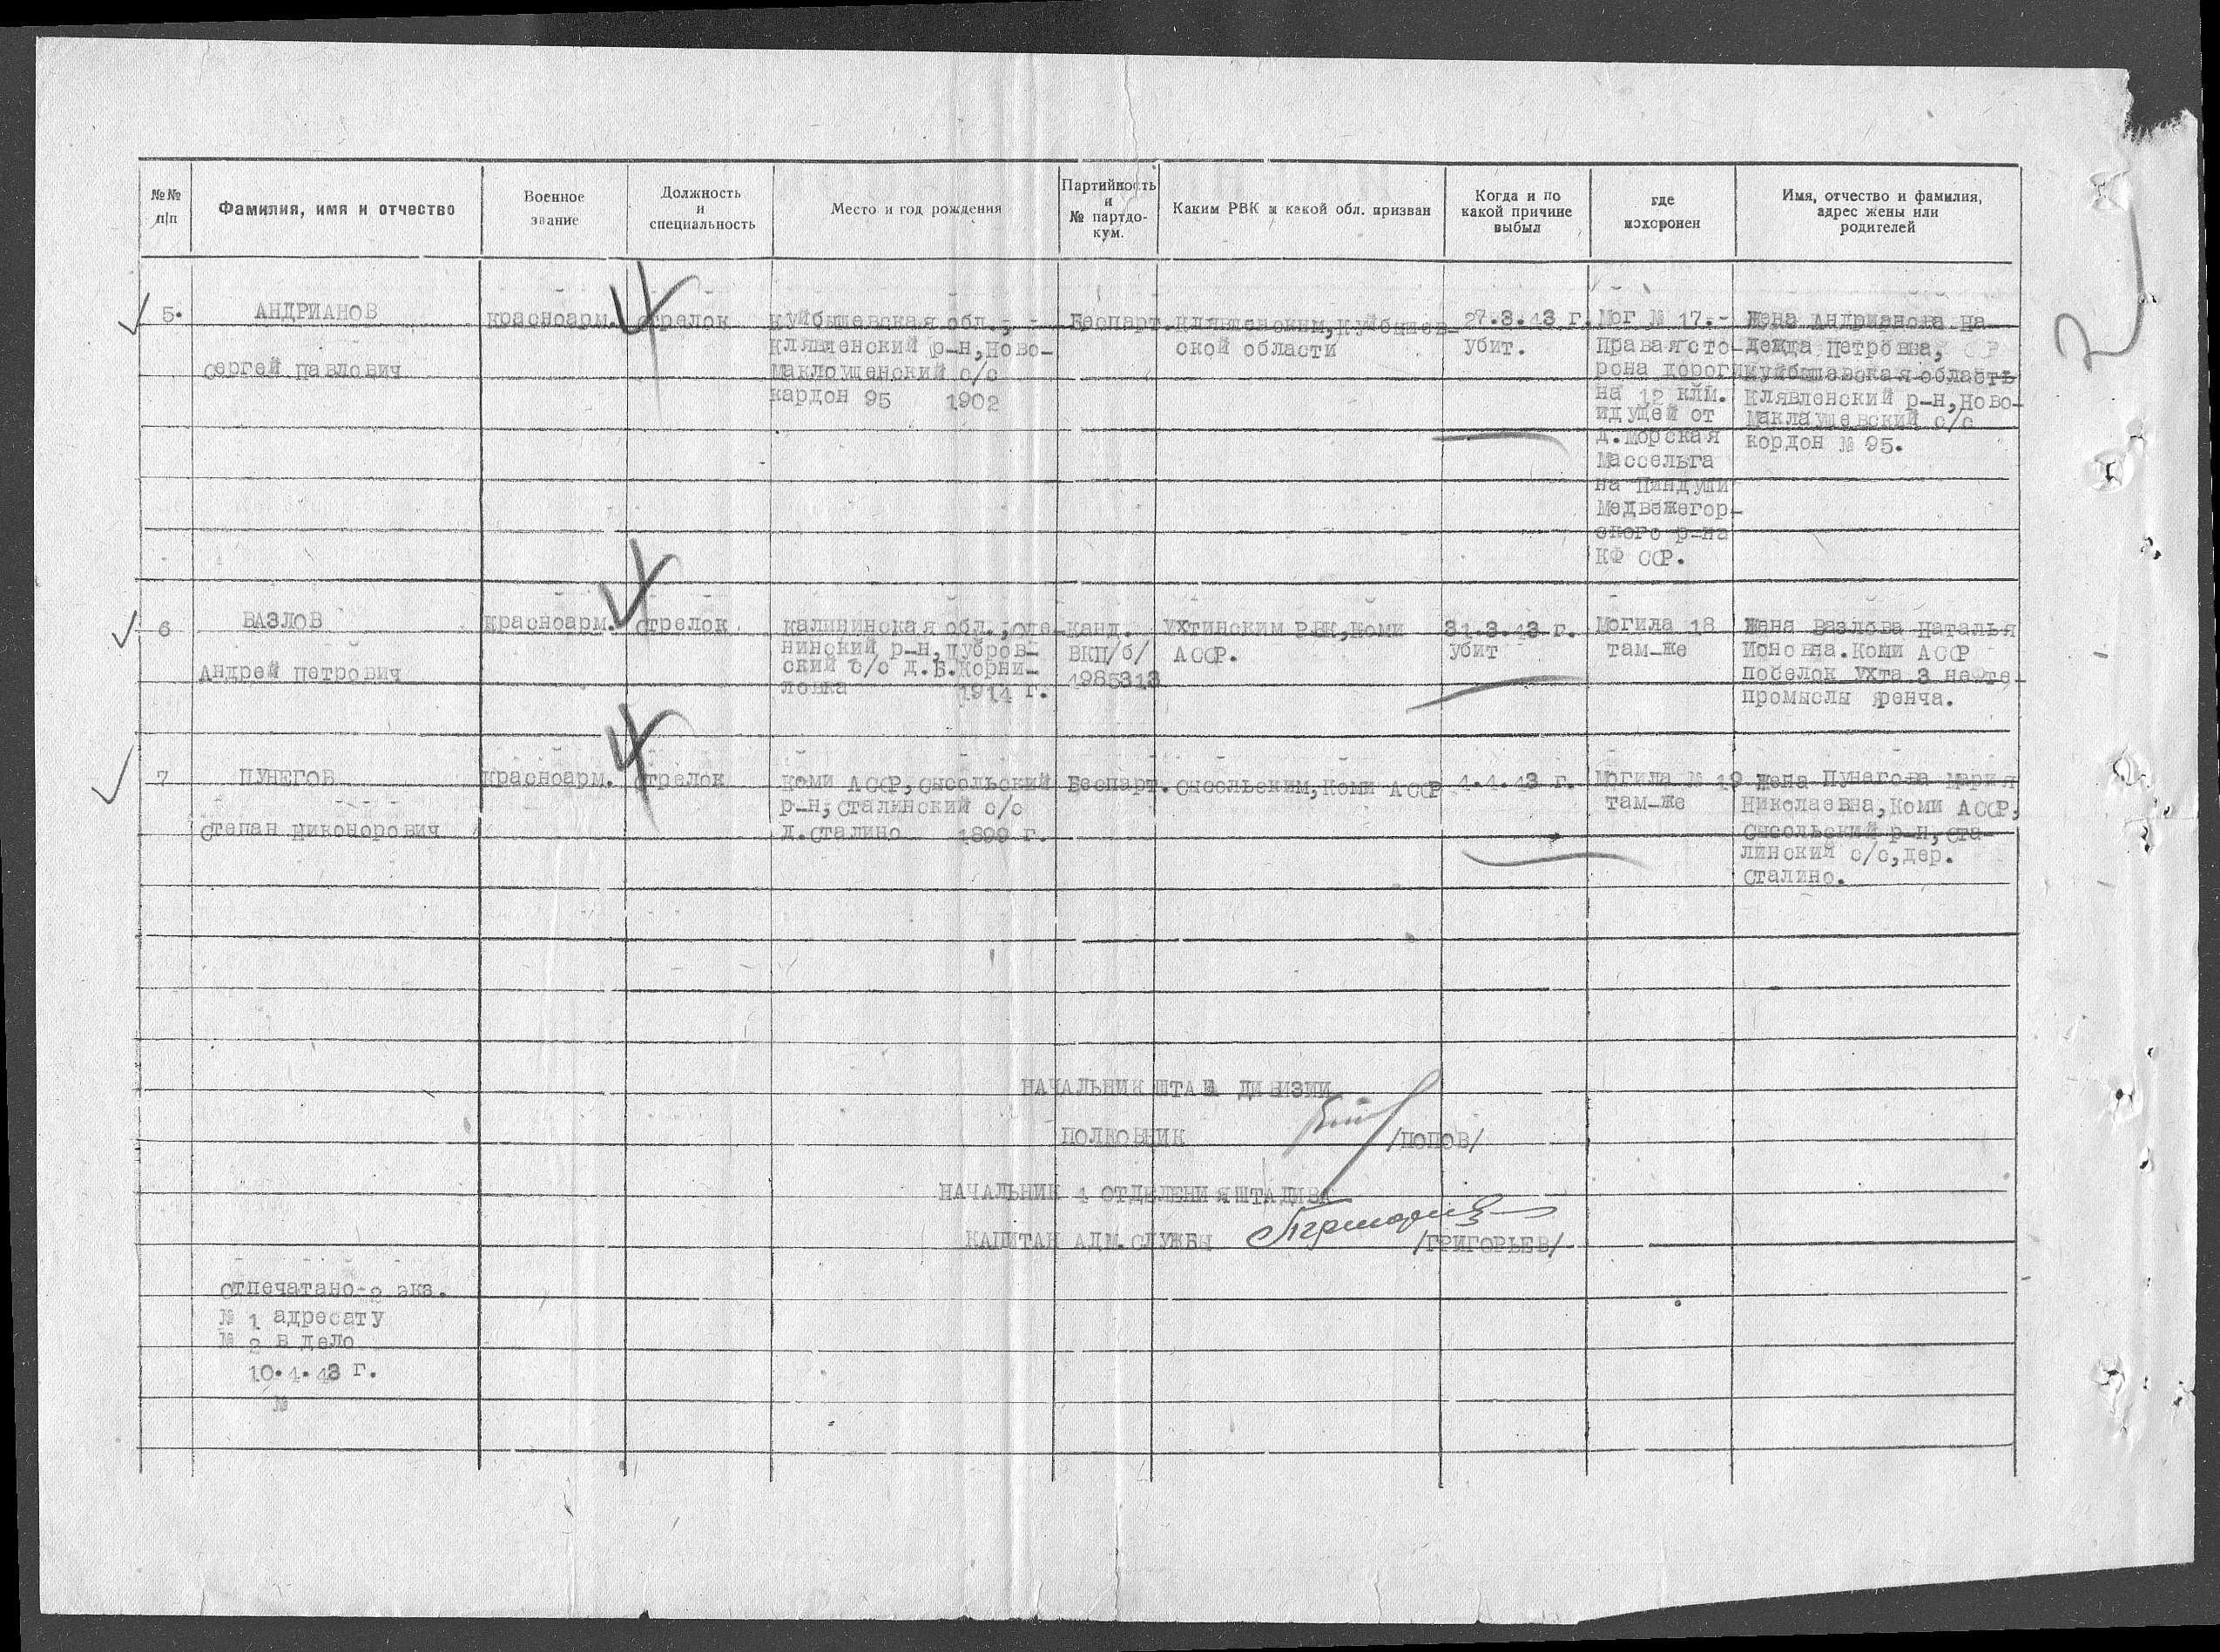 №№ п/п
Фамилия, имя и отчество
Военное звание
Должность и специальность
Место и год рождения
Партийность и № партдокум.
Каким РВК и какой обл. призван
Когда и по какой причине выбыл
где похоронен
Имя, отчество и фамилия, адрес жены или родителей
5.
АНДРИАНОВ
Сергей Павлович
красноарм.
стрелок
Куйбышевская обл.,
Клявленский р-н, Ново-
Маклоушенский с/с
кардон 95 1902
Беспарт.
Клявленским, Куйбышев-
ской области
27.3.43 г.
убит.
Мог № 17.-
Правая сто-
рона дороги
на 12 клм.
идущей от
д. Морская
Массельга
на Пиндуши
Медвежегор-
ского р-на
КФ ССР.
Жена Андрианова На-
дежда Петровна,
Куйбышевская область
Клявленский р-н, Ново-
Маклаушевский с/с
кордон № 95.
6
ВАЗЛОВ
Андрей Петрович
красноарм.
стрелок
Калининская обл., Оле-
нинский р-н, Дубров-
ский с/с д. Б. Корни-
ловка 1914 г.
Канд.
ВКП/б/
4985313
Ухтинским РВК, Коми
АССР.
31.3.43 г.
убит
Могила 18
там-же
Жена Вазлова Наталья
Ионовна. Коми АССР
поселок Ухта 3 нефте-
промыслы Яренча.
7
ПУНЕГОВ
Степан Никонорович
красноарм.
стрелок
Коми АССР, Сысольский
р-н, Сталинский с/с
д. Сталино 1899 г.
Беспарт.
Сысольским, Коми АССР
4.4.43 г.
Могила № 19
там-же
Жена Пунегова Мария
Николаевна, Коми АССР,
Сысольский р-н, Ста-
линский с/с, дер.
Сталино.
НАЧАЛЬНИК ШТАБА ДИВИЗИИ
ПОЛКОВНИК /ПОПОВ/
НАЧАЛЬНИК 4 ОТДЕЛЕНИЯ ШТАДИВА
КАПИТАН АДМ. СЛУЖБЫ /ГРИГОРЬЕВ/
Отпечатано-2 экз.
№ 1 адресату
№ 2 в дело
10.4.43 г.
№